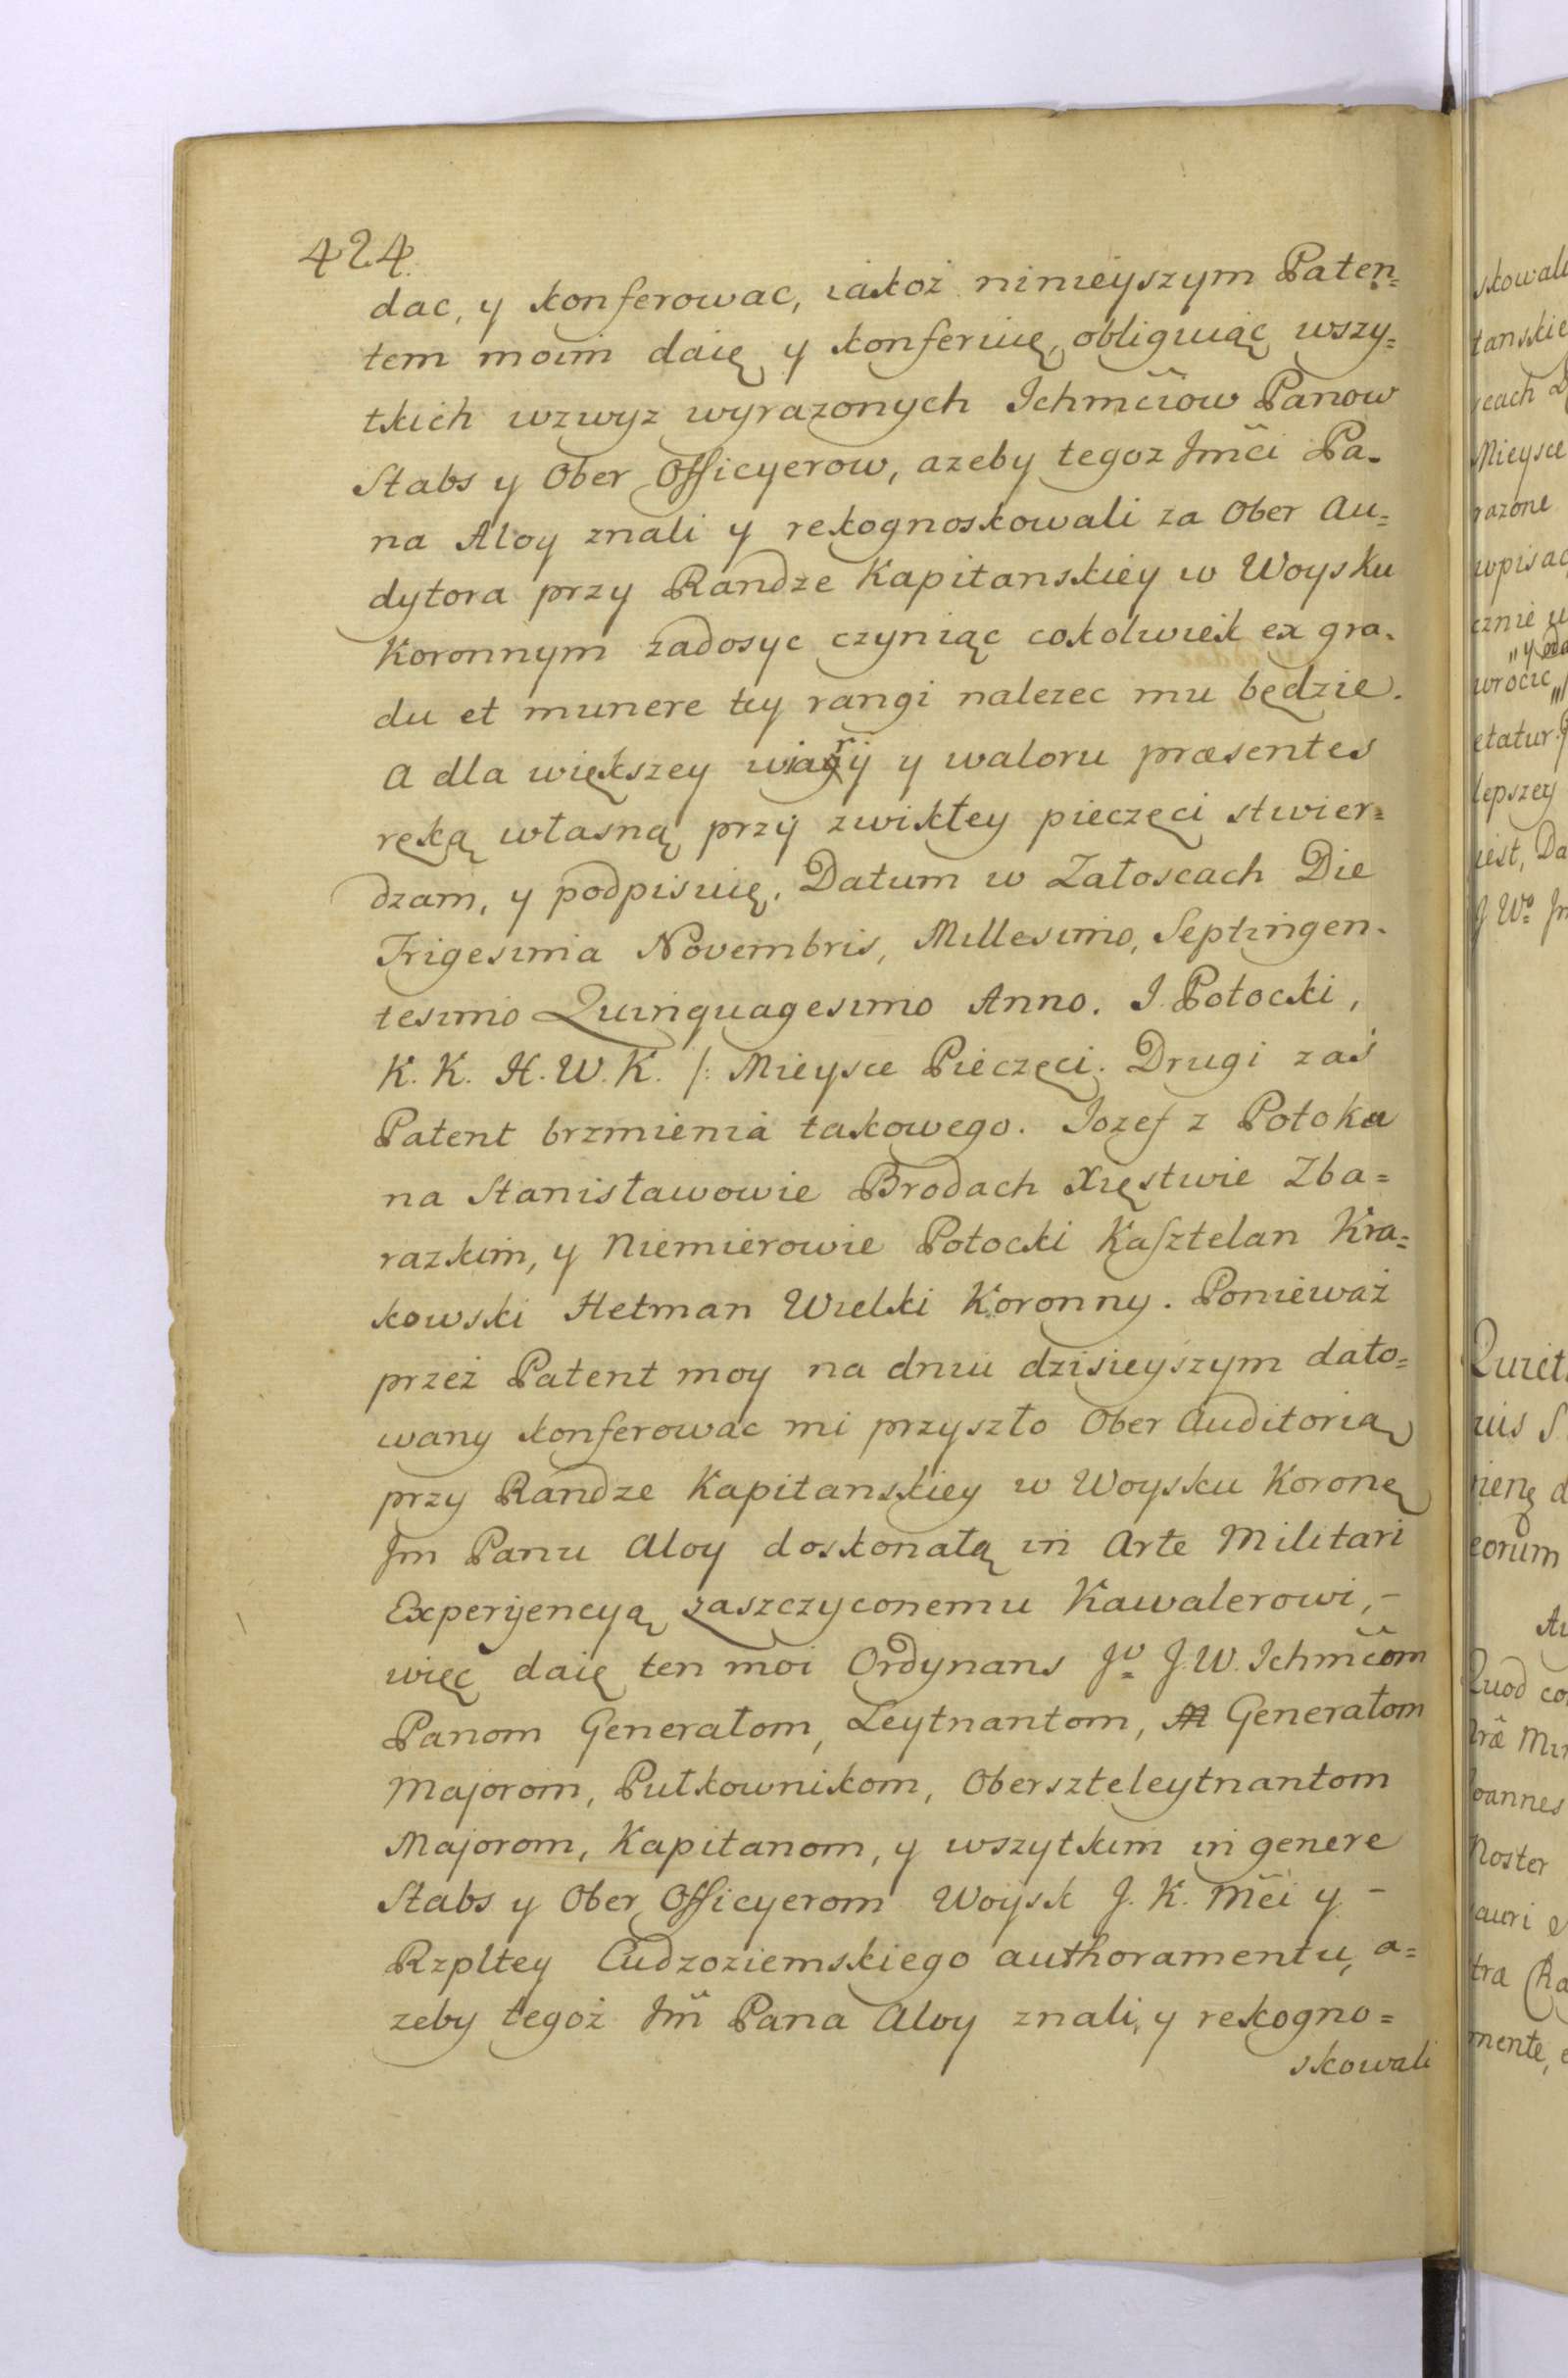 424.
dac, y konferowac, iakoż ninieyszym Paten=
tem moim daię y konferuię, obliguiąc wszy=
tkich wzwyz wyrazonych Ichmciow Panow
Stabs y Ober Officyerow, azeby tegoz Jmci Pa-
na Aloy znali y rekognoskowali za Ober Au=
dytora przy Randze Kapitanskiey w Woysku
Koronnym zadosyc czyniąc cokolwiek ex gra-
du et munere tey rangi nalezec mu będzie.
A dla większey wiary y waloru præsentes
ręką własną przy zwikłey pieczęci stwier=
dzam, y podpisuię. Datum w Załoscach Die
Trigesima Novembris, Millesimo, Septingen-
tesimo Quinquagesimo Anno. J. Potocki,
K. K. H. W. K. /: Mieysce Pieczęci. Drugi zaś
Patent brzmienia takowego. Iozef z Potoka
na Stanisławowie Brodach Xięstwie Zba=
razkim, y Niemierowie Potocki Kasztelan Kra=
kowski Hetman Wielki Koronny. Ponieważ
przez Patent moy na dniu dzisieyszym dato=
wany konferowac mi przyszło Ober Auditorią
przy Randze Kapitanskiey w Woysku Koronę
Jm Panu Aloy doskonałą in Arte Militari
Experyencyą zaszczyconemu Kawalerowi, -
więc daię ten moi Ordynans J: J.W. Ichmcom
Panom Generałom, Leytnantom, M Generałom
Majorom, Pułkownikom, Oberszteleytnantom
Majorom, Kapitanom, y wszytkim in genere
Stabs y Ober Officyerom Woysk J. K. Mci y -
Rzpltey Cudzoziemskiego authoramentu, a=
zeby tegoż Jm Pana Aloy znali, y rekogno=
skowali
skowali
tanskie
Mieysce
razone
wpisac
cznie
wrocic
etatur.
lepszey
iest, Da
Quiet
eorum
Quod co
oannes
Noster
auri e
tra
mente, e